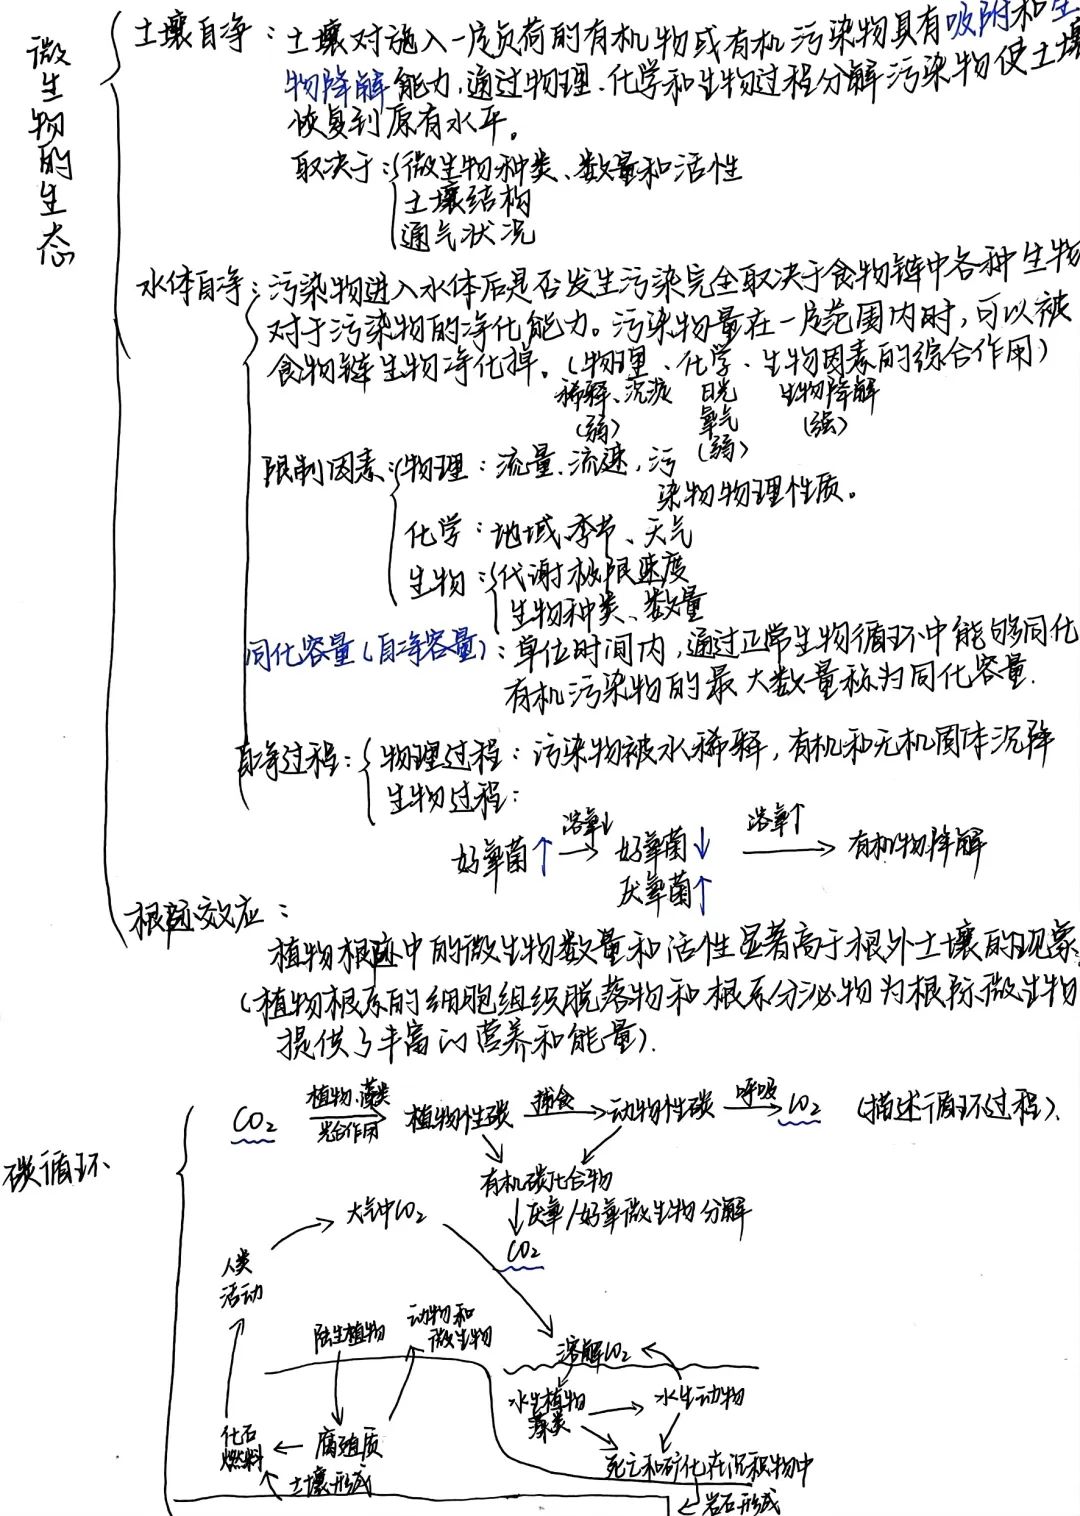 微生物的生态
土壤自净：土壤对施入一定负荷的有机物或有机污染物具有吸附和生
物降解能力，通过物理、化学和生物过程分解污染物使土壤
恢复到原有水平。
取决于：微生物种类、数量和活性
土壤结构
通气状况
水体自净：污染物进入水体后是否发生污染完全取决于食物链中各种生物
对于污染物的净化能力。污染物量在一定范围内时，可以被
食物链生物净化掉。（物理、化学、生物因素的综合作用）
稀释、沉淀 日光 生物降解
（弱） 氧气 （强）
（弱）
限制因素：物理：流量、流速，污
染物物理性质。
化学：地域、季节、天气
生物：代谢极限速度
生物种类、数量
同化容量（自净容量）：单位时间内，通过正常生物循环中能够同化
有机污染物的最大数量称为同化容量.
自净过程：物理过程：污染物被水稀释，有机和无机固体沉降
生物过程：
好氧菌↑ 溶氧↓→ 好氧菌↓ 溶氧↑→ 有机物降解
厌氧菌↑
根际效应：
植物根际中的微生物数量和活性显著高于根外土壤的现象。
（植物根系的细胞组织脱落物和根系分泌物为根际微生物
提供了丰富的营养和能量）.
碳循环
CO₂ 植物、藻类 光合作用→ 植物性碳 捕食→ 动物性碳 呼吸→ CO₂ （描述循环过程）.
有机碳化合物
↓厌氧/好氧微生物分解
CO₂
大气中CO₂
人类
活动
陆生植物
动物和
微生物
溶解CO₂
水生植物
藻类
→ 水生动物
化石
燃料
← 腐殖质
土壤形成
死亡和矿化在沉积物中
←岩石形成